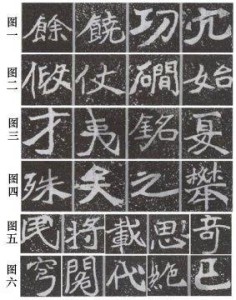 图一 餘 饒 功
图二 仗 磵 始
图三 才 夷 銘 夏
图四 殊 矣 之 攀
图五 民 將 載 思 奇
图六 穹 閣 代 絶 已